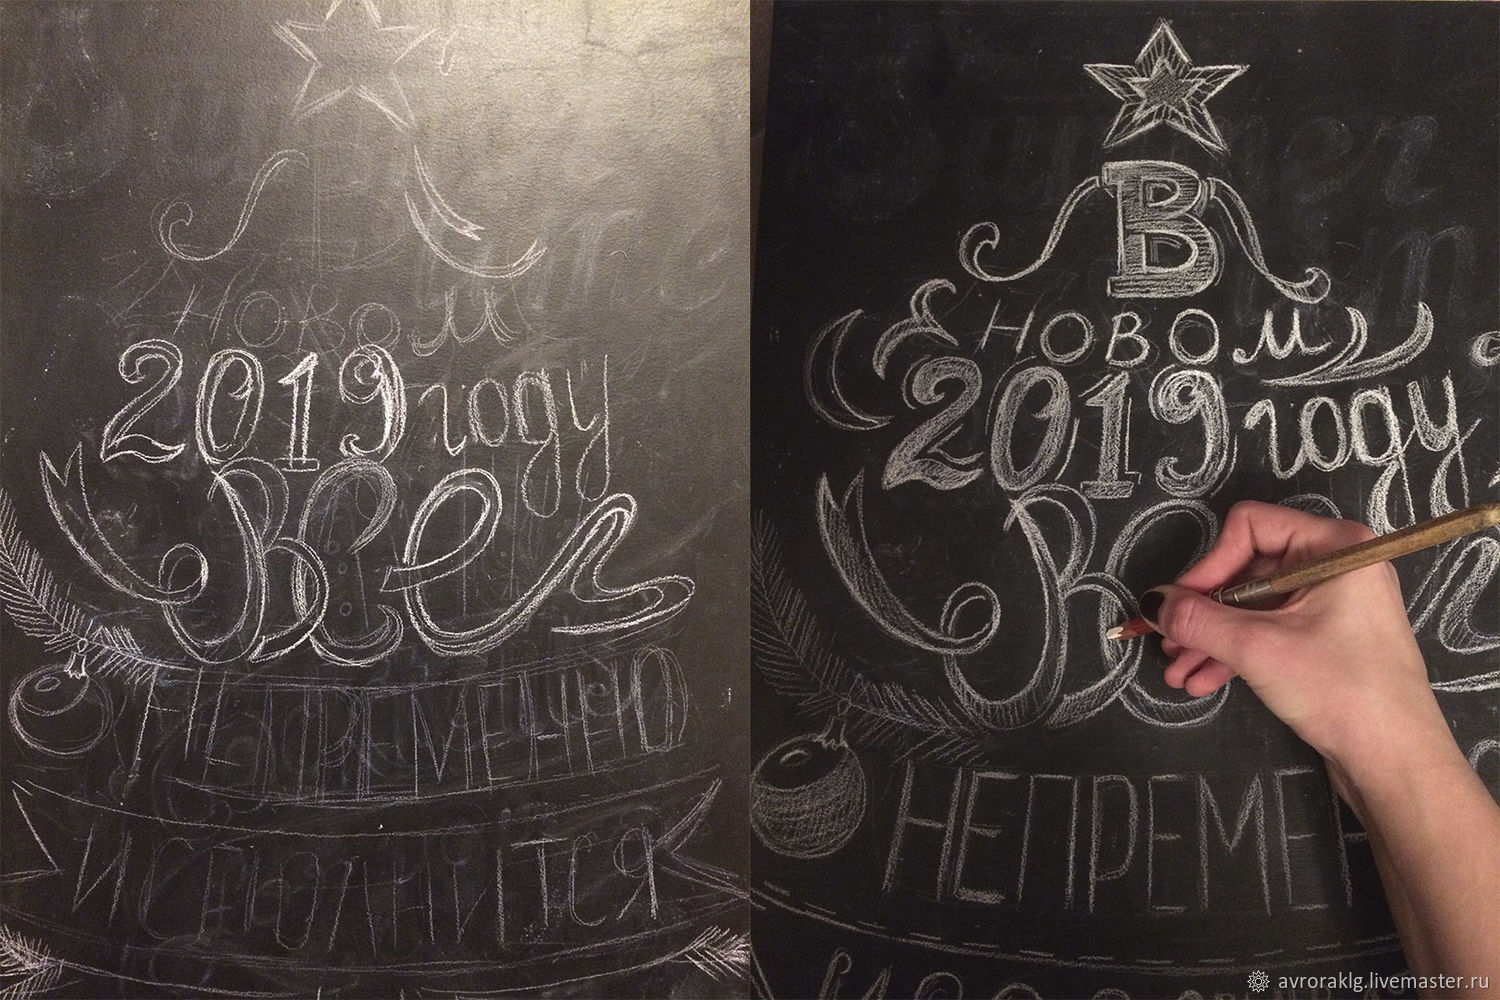 новом
2019 году
все
НЕПРЕМЕННО
ИСПОЛНИТСЯ
В
новом
2019 году
все
НЕПРЕМЕН
avroraklg.livemaster.ru